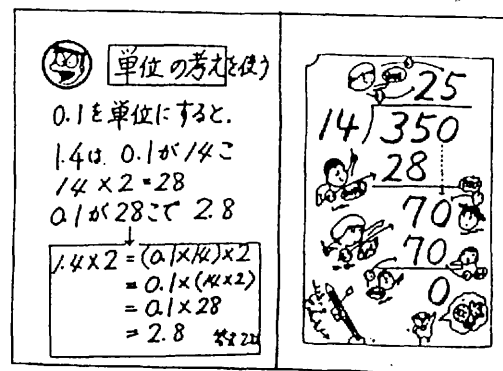 単位の考えを使う
0.1を単位にすると、
1.4は 0.1が14こ
14×2=28
0.1が28こで 2.8
↓
1.4×2=(0.1×14)×2
=0.1×(14×2)
=0.1×28
=2.8
25
14)350
28
70
70
0